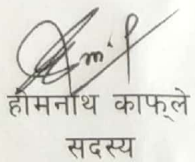 होमनाथ काफ्ले
सदस्य